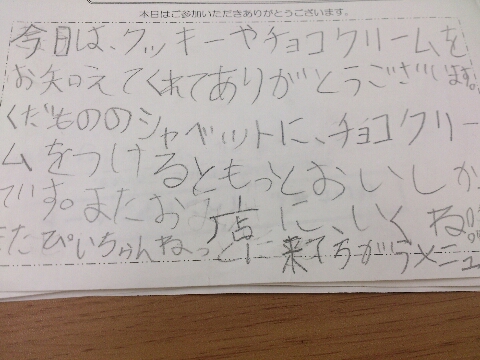 本日はご参加いただきありがとうございます。
今日は、クッキーやチョコクリームを
お知えてくれてありがとうございます。
くだもののシャベットに、チョコクリー
ムをつけるともっとおいしか
です。またお店に、いくね。
たぴいちゃんねっと 来てちがうメニュ